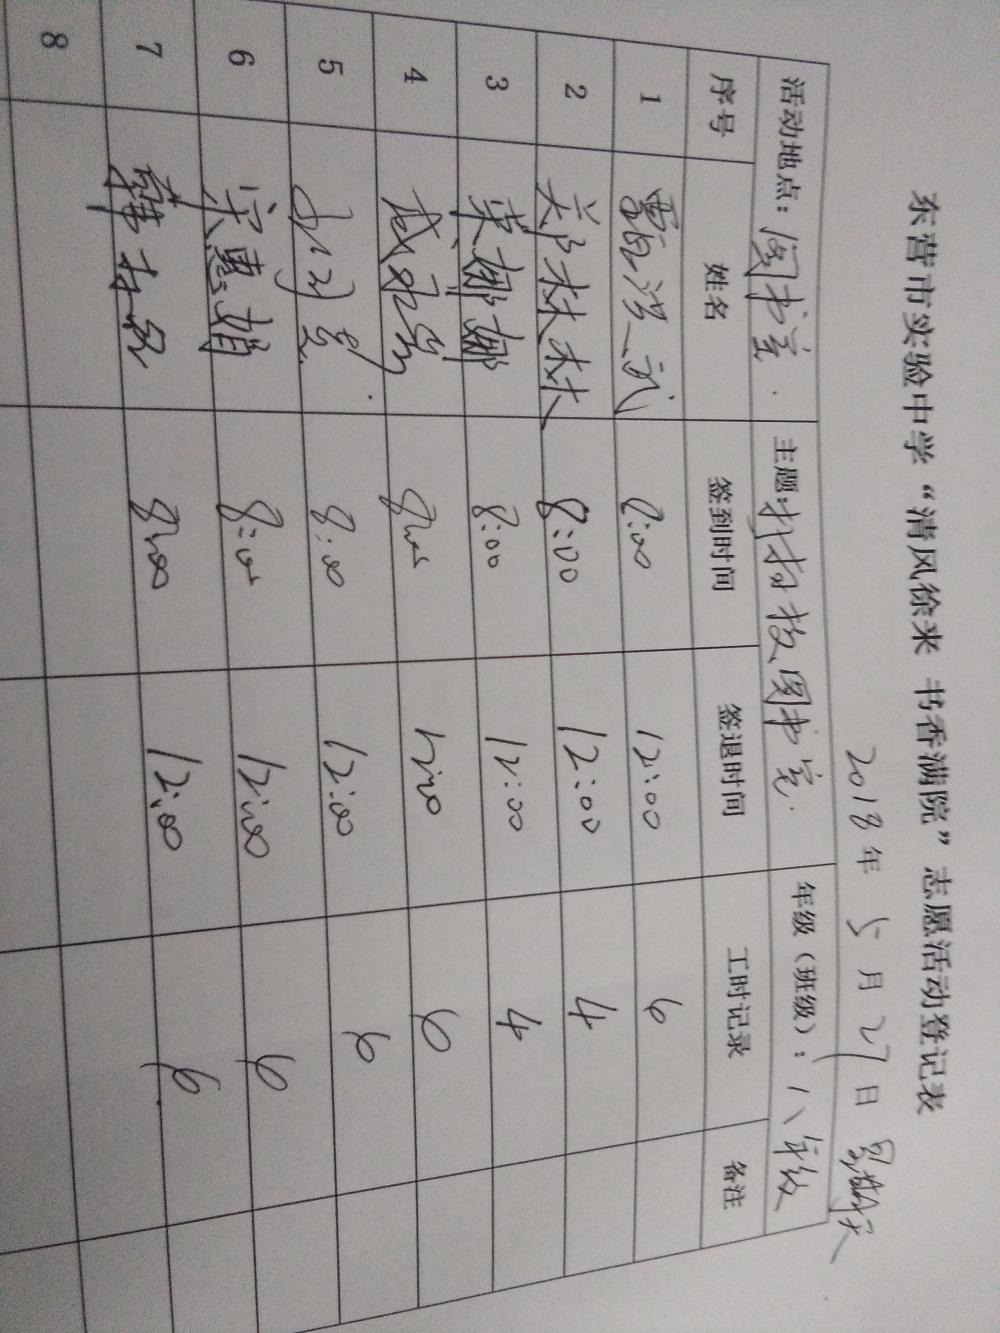 东营市实验中学“清风徐来 书香满院”志愿活动登记表
2018年 5月 27日
活动地点：图书室. 主题：打扫校图书室. 年级（班级）：八年级
序号 姓名 签到时间 签退时间 工时记录 备注
1 8:00 12:00 6
2 林林 8:00 12:00 4
3 娜娜 8:00 12:00 4
4 8:00 12:00 6
5 8:00 12:00 6
6 宋惠娟 8:00 12:00 6
7 8:00 12:00 6
8